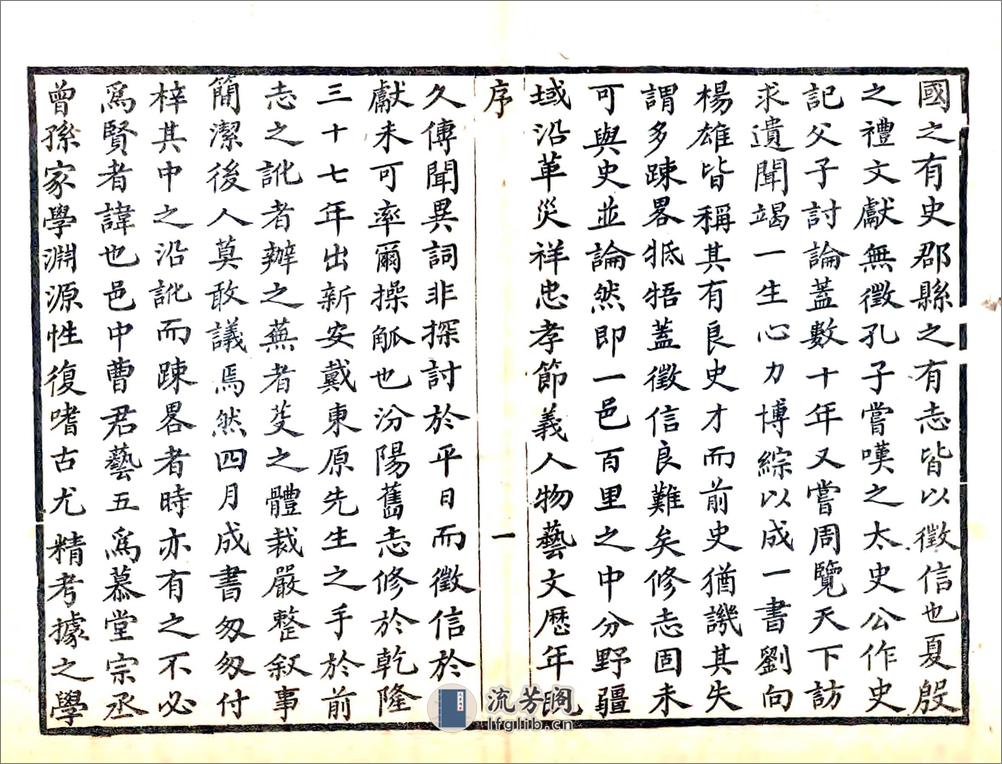 國之有史郡縣之有志皆以徵信也夏殷
之禮文獻無徵孔子嘗嘆之太史公作史
記父子討論蓋數十年又嘗周覽天下訪
求遺聞竭一生心力博綜以成一書劉向
楊雄皆稱其有良史才而前史猶譏其失
謂多踈畧牴牾蓋徵信良難矣修志固未
可與史並論然即一邑百里之中分野疆
域沿革災祥忠孝節義人物藝文歷年
序
一
久傳聞異詞非探討於平日而徵信於
獻未可率爾操觚也汾陽舊志修於乾隆
三十七年出新安戴東原先生之手於前
志之訛者辦之蕪者芟之體裁嚴整叙事
簡潔後人莫敢議焉然四月成書匆匆付
梓其中之沿訛而踈畧者時亦有之不必
爲賢者諱也邑中曹君藝五爲慕堂宗丞
曾孫家學淵源性復嗜古尤精考據之學
流芳阁
lfglib.cn